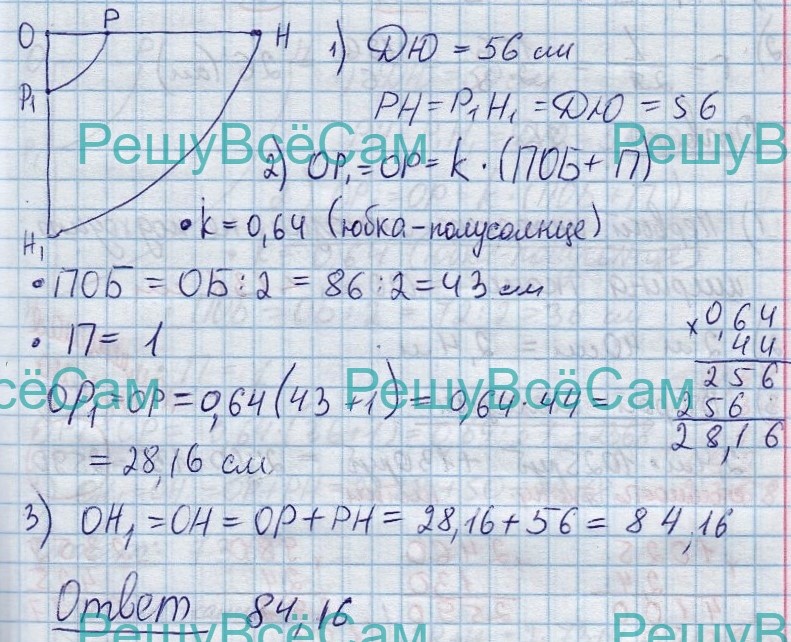 O P H
P₁
H₁
1) ДЮ = 56 см
PH = P₁H₁ = ДЮ = 56
РешуВсёСам РешуВ
2) OP₁ = OP = k · (ПОБ + П)
• k = 0,64 (юбка-полусолнце)
• ПОБ = ОБ : 2 = 86 : 2 = 43 см
• П = 1
× 0,64
44
256
256
28,16
сёСам РешуВсёСам
OP₁ = OP = 0,64 (43 + 1) = 0,64 · 44 =
= 28,16 см
3) OH₁ = OH = OP + PH = 28,16 + 56 = 84,16
Ответ 84,16
РешуВсёСам РешуВ